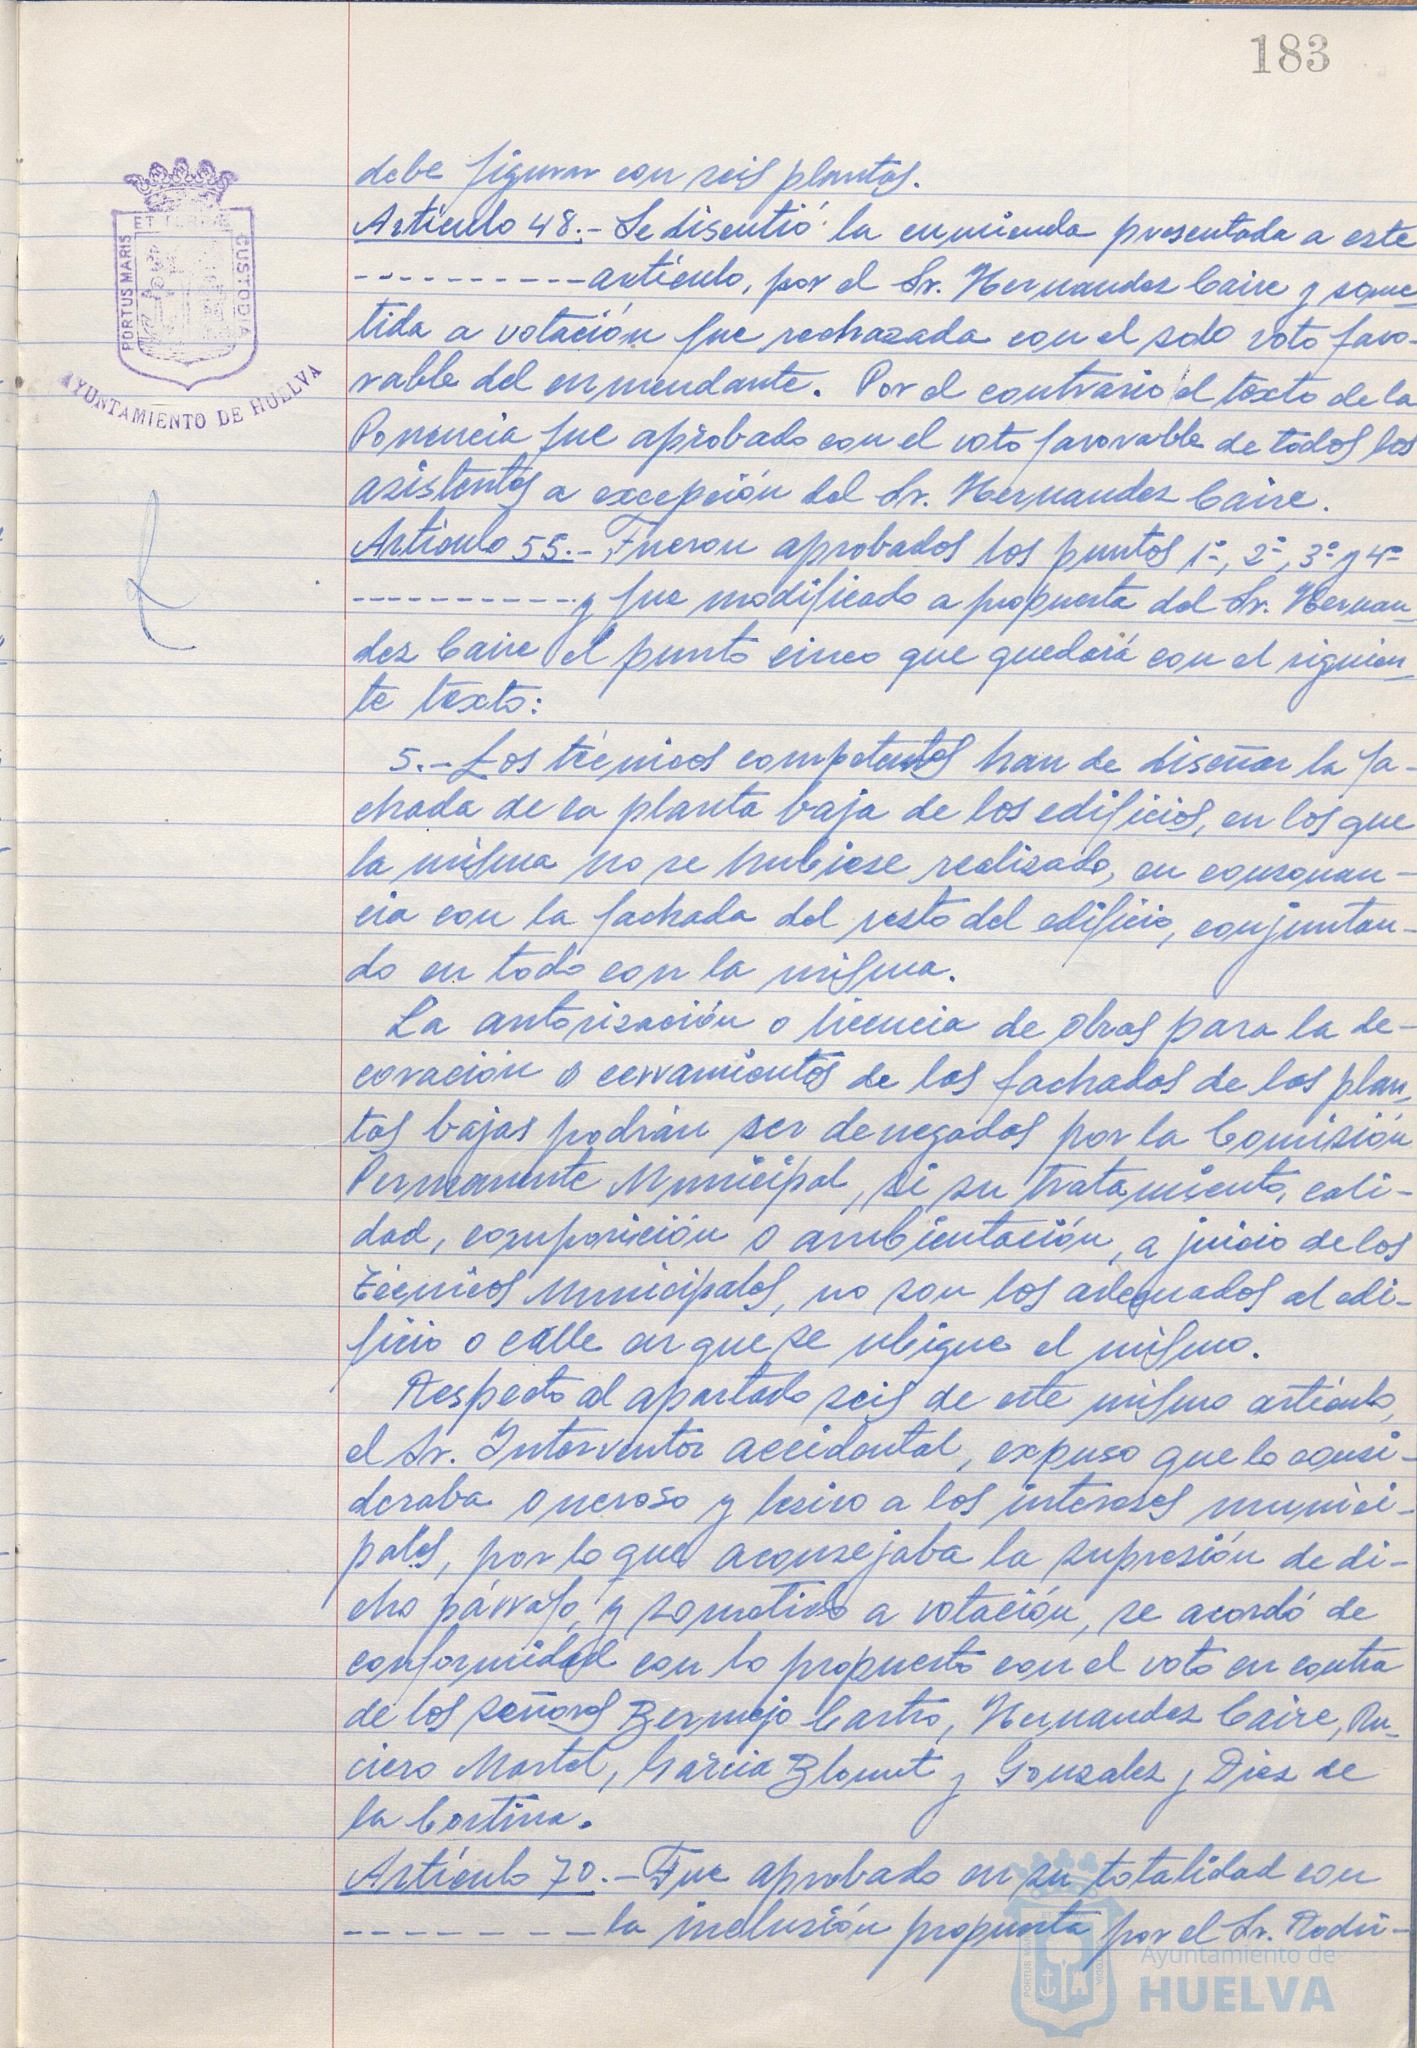 183
PORTUS MARIS
CUSTODIA
AYUNTAMIENTO DE HUELVA
debe figurar con seis plantas.
Artículo 48.- Se discutió la enmienda presentada a este
----------artículo, por el Sr. Hernandez Caire y some-
tida a votación fue rechazada con el solo voto favo-
rable del enmendante. Por el contrario el texto de la
Ponencia fue aprobado con el voto favorable de todos los
asistentes a excepción del Sr. Hernandez Caire.
Artículo 55.- Fueron aprobados los puntos 1º, 2º, 3º y 4º
----------y fue modificado a propuesta del Sr. Hernan-
dez Caire el punto cinco que quedará con el siguien-
te texto:
5.- Los técnicos competentes han de diseñar la fa-
chada de la planta baja de los edificios, en los que
la misma no se hubiese realizado, en consonan-
cia con la fachada del resto del edificio, conjuntan-
do en todo con la misma.
La autorización o licencia de obras para la de-
coración o cerramientos de las fachadas de las plan-
tas bajas podrán ser denegadas por la Comisión
Permanente Municipal, si su tratamiento, cali-
dad, composición o ambientación, a juicio de los
Técnicos Municipales, no son los adecuados al edi-
ficio o calle en que se ubique el mismo.
Respecto al apartado seis de este mismo artículo,
el Sr. Interventor accidental, expuso que lo consi-
deraba oneroso y lesivo a los intereses munici-
pales, por lo que aconsejaba la supresión de di-
cho párrafo, y sometido a votación, se acordó de
conformidad con lo propuesto con el voto en contra
de los señores Bermejo Castro, Hernandez Caire, Ru-
ciero Martel, García Blount y Gonzalez y Diez de
la Cortina.
Artículo 70.- Fue aprobado en su totalidad con
--------la inclusión propuesta por el Sr. Rodrí-
Ayuntamiento de
HUELVA